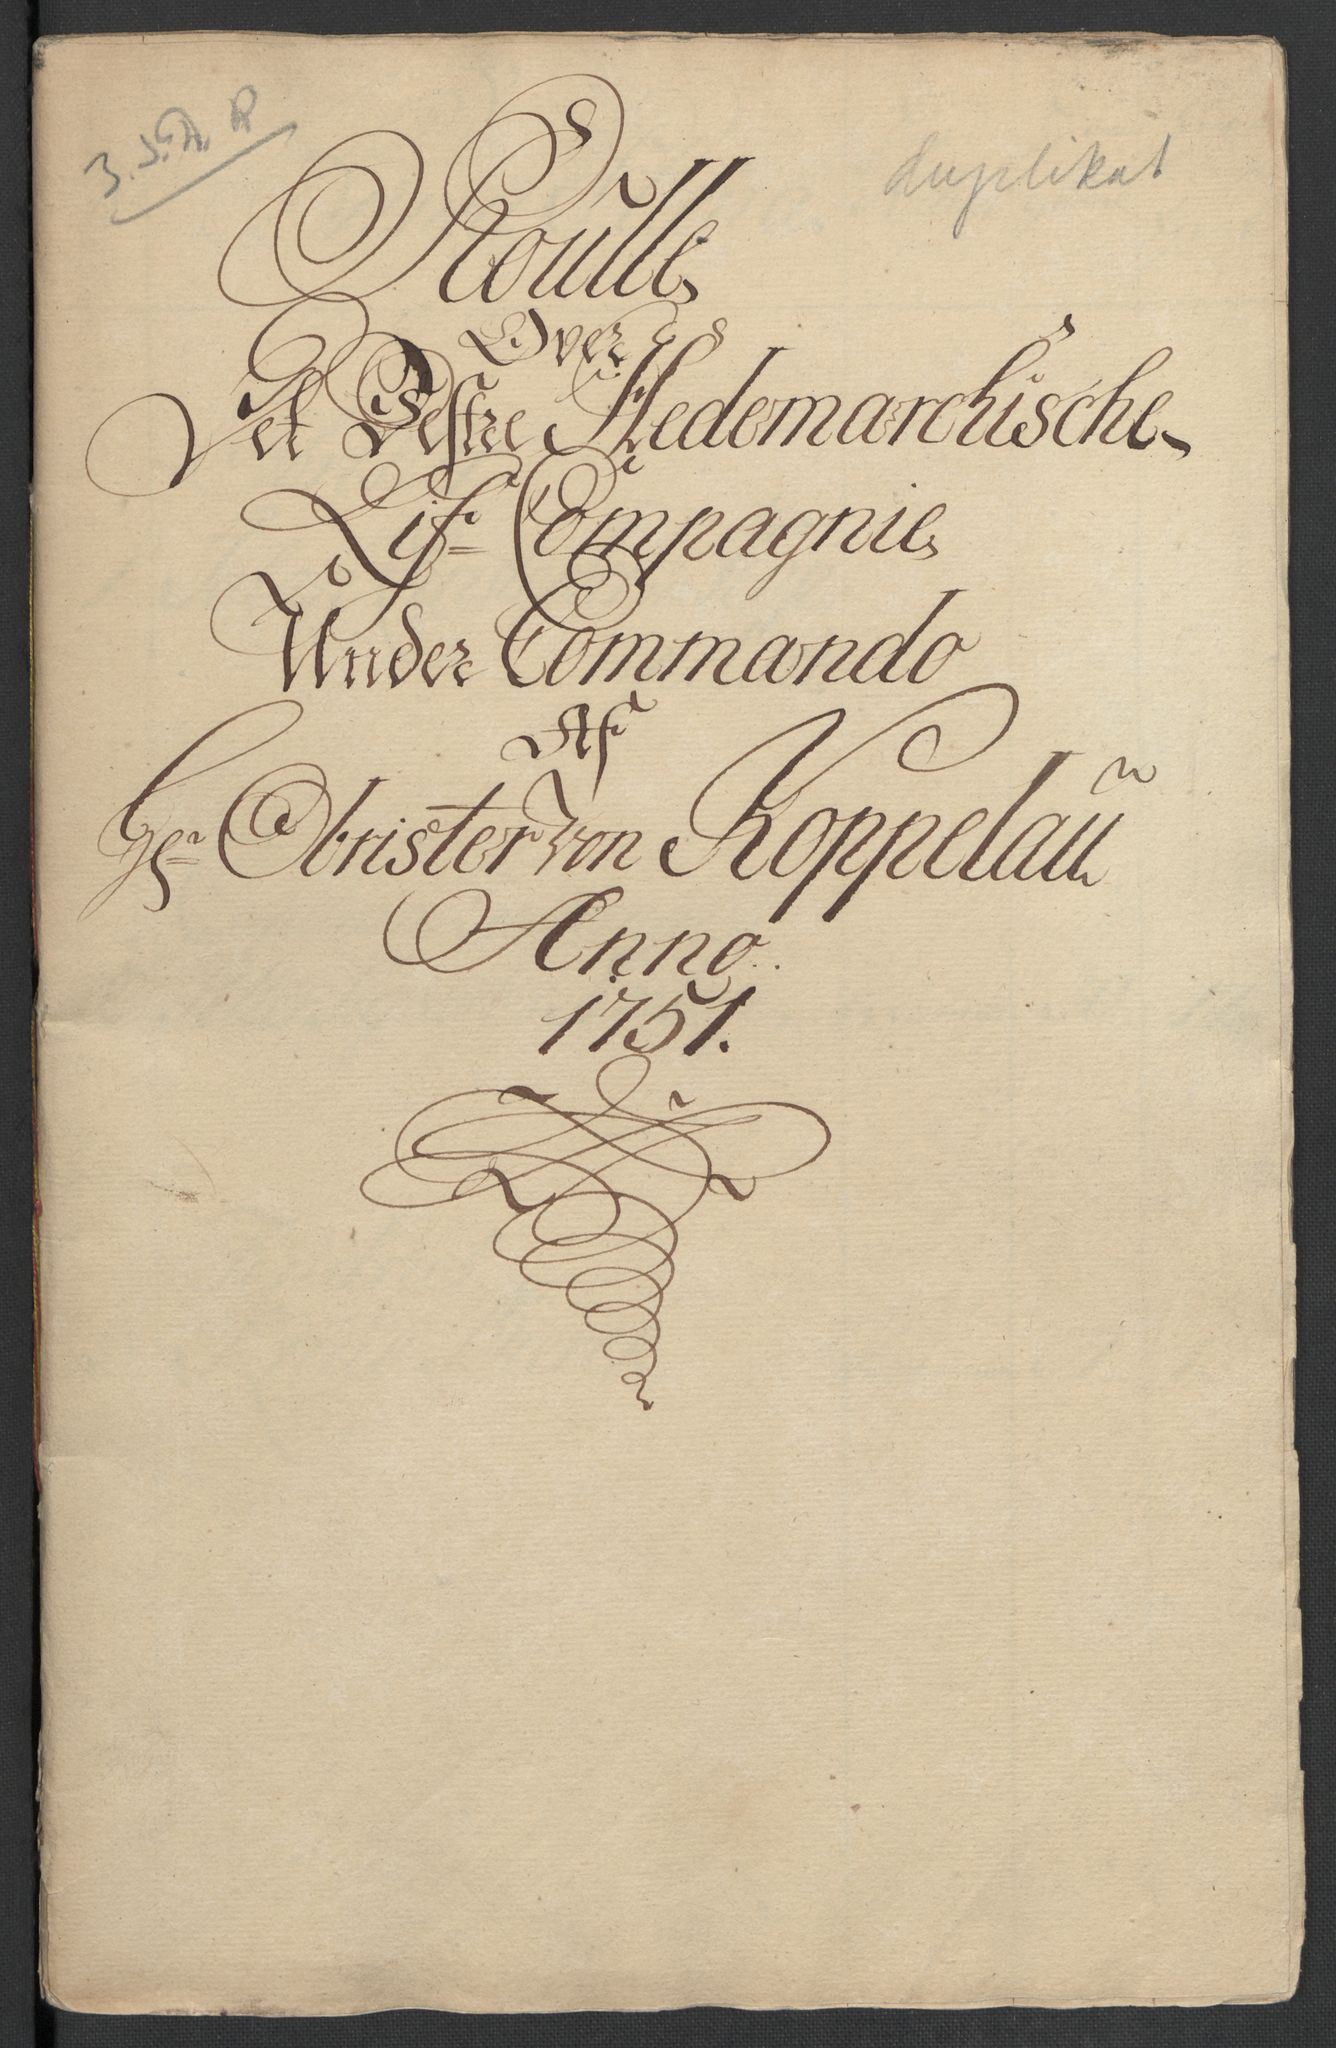 3. S. A. R
duplikat
Roulle
Over
Det Vestre Hedemarchische
Lif= Compagnie
Under Commando
Af
Hr= Obrister von Koppelau
Anno
1751.